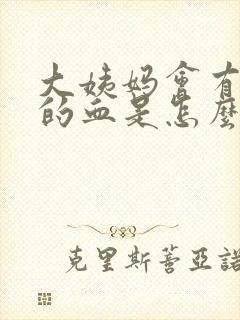 大姨妈會有
的血是怎麼
克里斯蒂亞諾